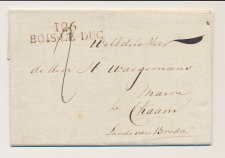 126
BOIS-LE-DUC
WelEdele Heer
de Heer A Waegemans
Maire
te Chaam
Lande van Breda